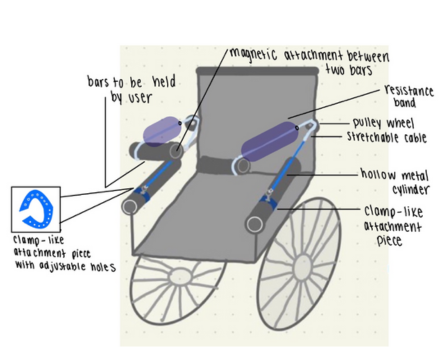 magnetic attachment between
two bars
bars to be held
by user
resistance
band
pulley wheel
stretchable cable
hollow metal
cylinder
clamp-like
attachment
piece
clamp-like
attachment piece
with adjustable holes